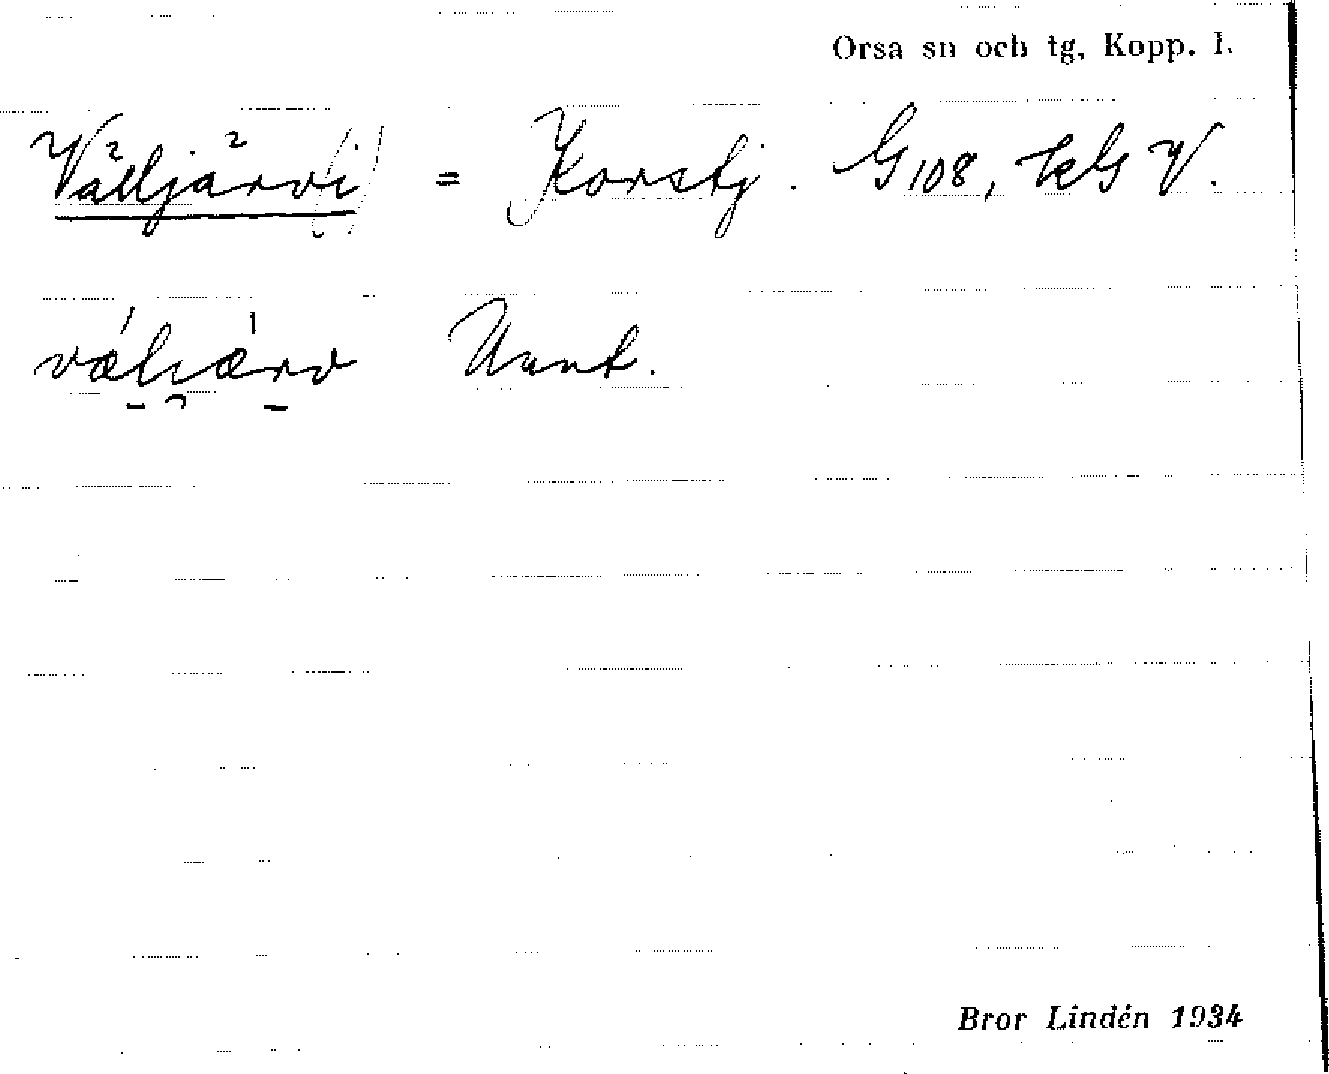 Orsa sn och tg, Kopp. l.
Välljärv(i) = Korstj. G 108, kG V.
väliärv
Bror Lindén 1934